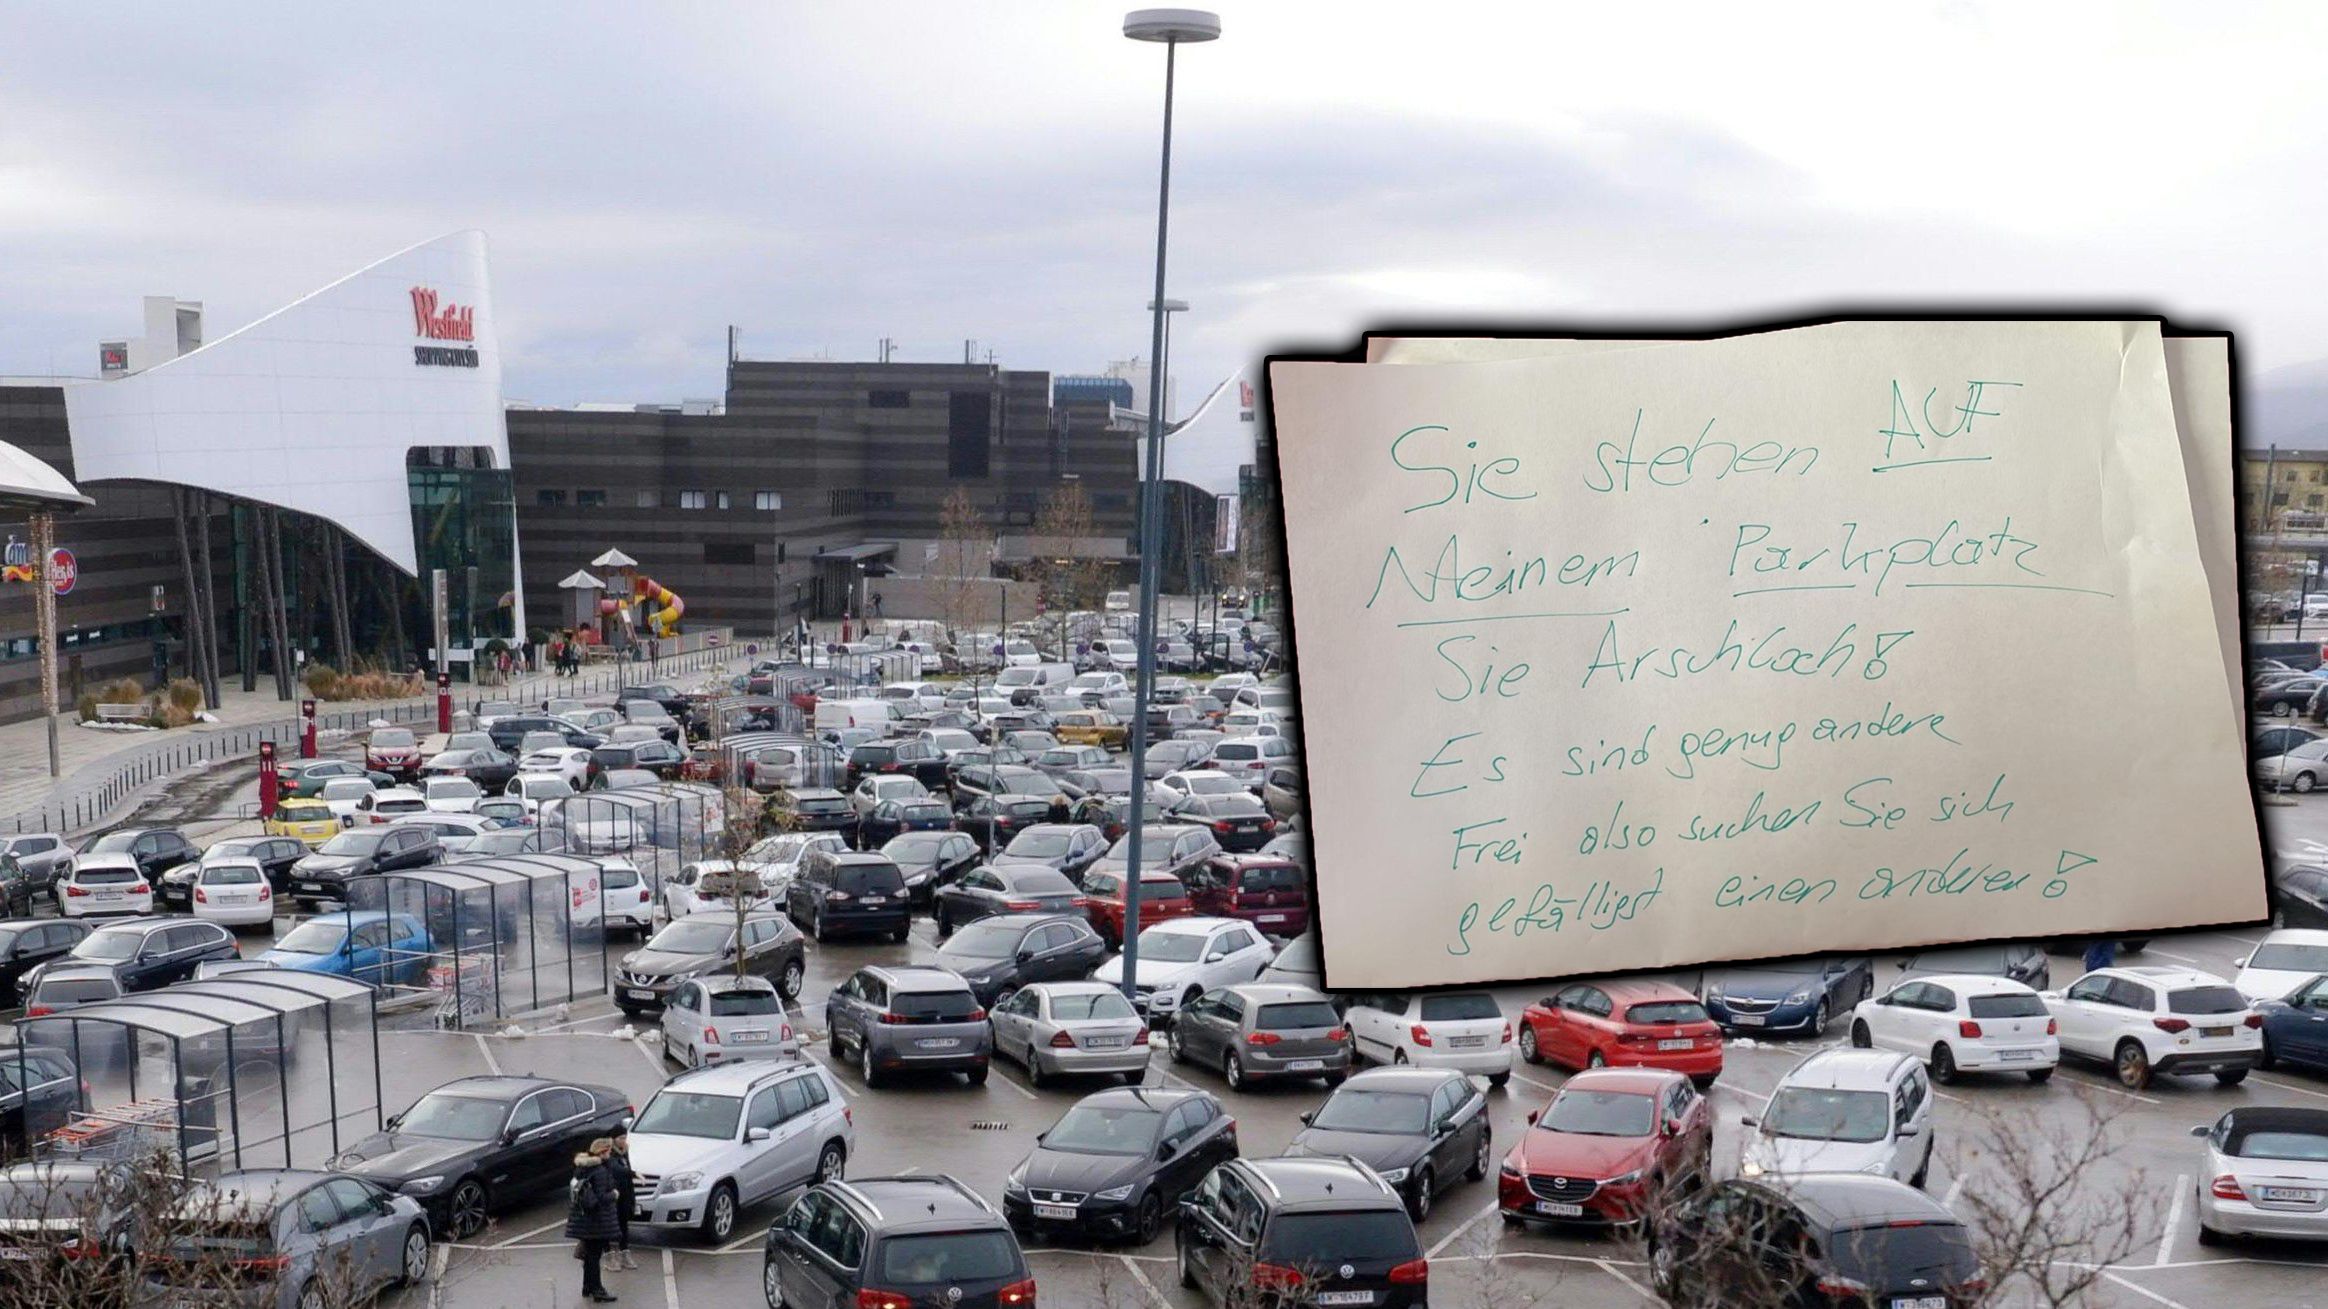 Westfield
SHOPPING CITY SÜD
dm
Sie stehen AUF
Meinem Parkplatz
Sie Arschloch!
Es sind genug andere
Frei also suchen Sie sich
gefälligst einen anderen!